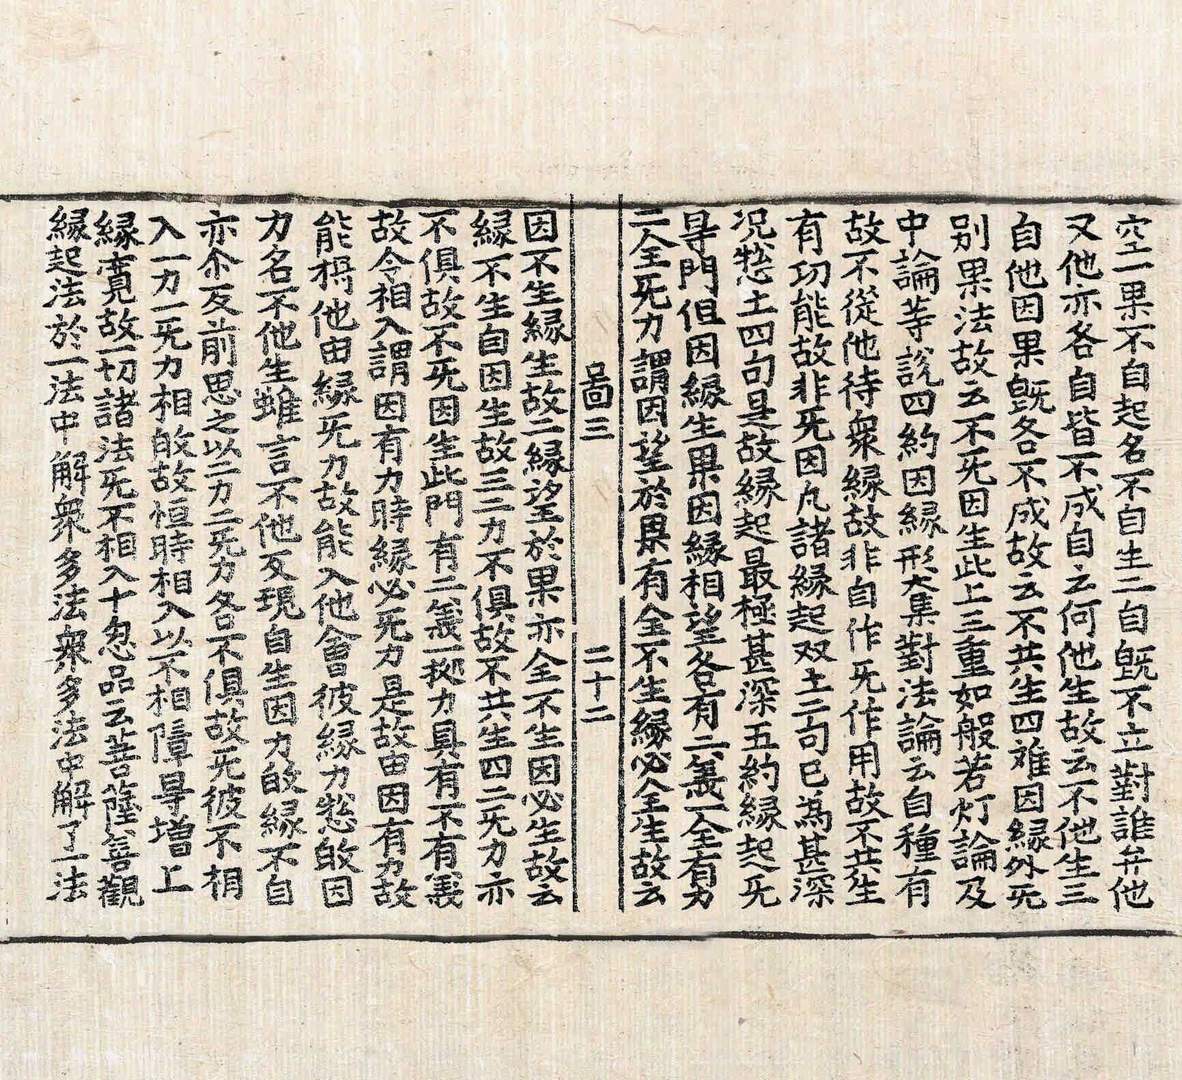 空一果不自起名不自生二自既不立對誰弁他
又他亦各自皆不成自云何他生故云不他生三
自他因果旣各不成故云不共生四难因縁外旡
别果法故云不旡因生此上三重如般若灯論及
中論䓁說四約因縁形大集對法論云自種有
故不從他待衆縁故非自作旡作用故不共生
有功能故非旡因凡諸縁起双土二句已為甚深
况㹅土四句是故縁起最極甚深五約縁起旡
㝵門但因縁生果因縁相望各有二義一全有力
二全旡力謂因望於果有全不生縁必全生故云
啚三 二十二
因不生縁生故二縁望於果亦全不生因必生故云
縁不生自因生故三二力不俱故不共生四二旡力亦
不俱故不旡因生此門有二義一㧾力具有不有義
故令相入謂因有力時縁必旡力是故由因有力故
能㨿他由縁旡力故能入他會彼縁力㹅的因
力名不他生雖言不他反現自生因力的縁不自
亦尒反前思之以二力二旡力各不俱故旡彼不相
入一力一旡力相的故恒時相入以不相障㝵增上
縁亶故一切諸法旡不相入十忽品云菩薩善觀
縁起法於一法中解衆多法衆多法中解了一法